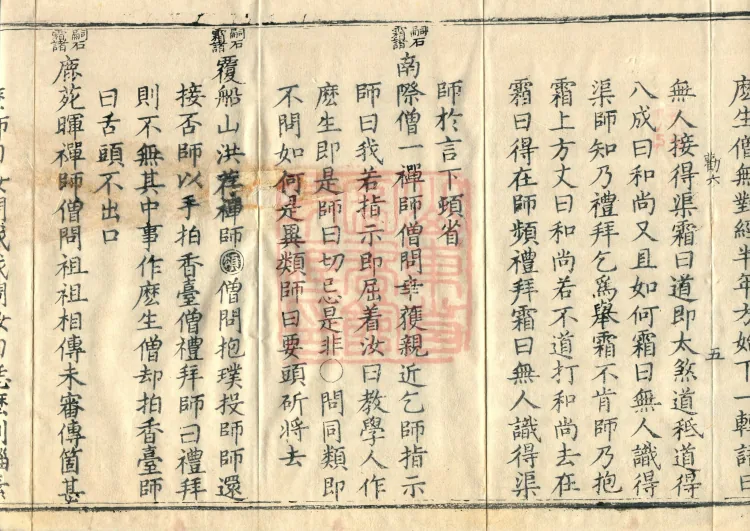 麽生僧無對經半年方始下一轉語曰
勸六
五
無人接得渠霜曰道即太煞道秪道得
八成曰和尚又且如何霜曰無人識得
渠師知乃禮拜乞爲舉霜不肯師乃抱
霜上方丈曰和尚若不道打和尚去在
霜曰得在師頻禮拜霜曰無人識得渠
師於言下頓省
嗣石霜諸
南際僧一禪師僧問幸獲親近乞師指示
師曰我若指示即屈着汝曰教學人作
麽生即是師曰切忌是非〇問同類即
不問如何是異類師曰要頭斫將去
嗣石霜諸
覆船山洪荐禪師僧問抱璞投師師還
接否師以手拍香臺僧禮拜師曰禮拜
則不無其中事作麽生僧却拍香臺師
曰舌頭不出口
嗣石霜諸
鹿苑暉禪師僧問祖祖相傳未審傳箇甚